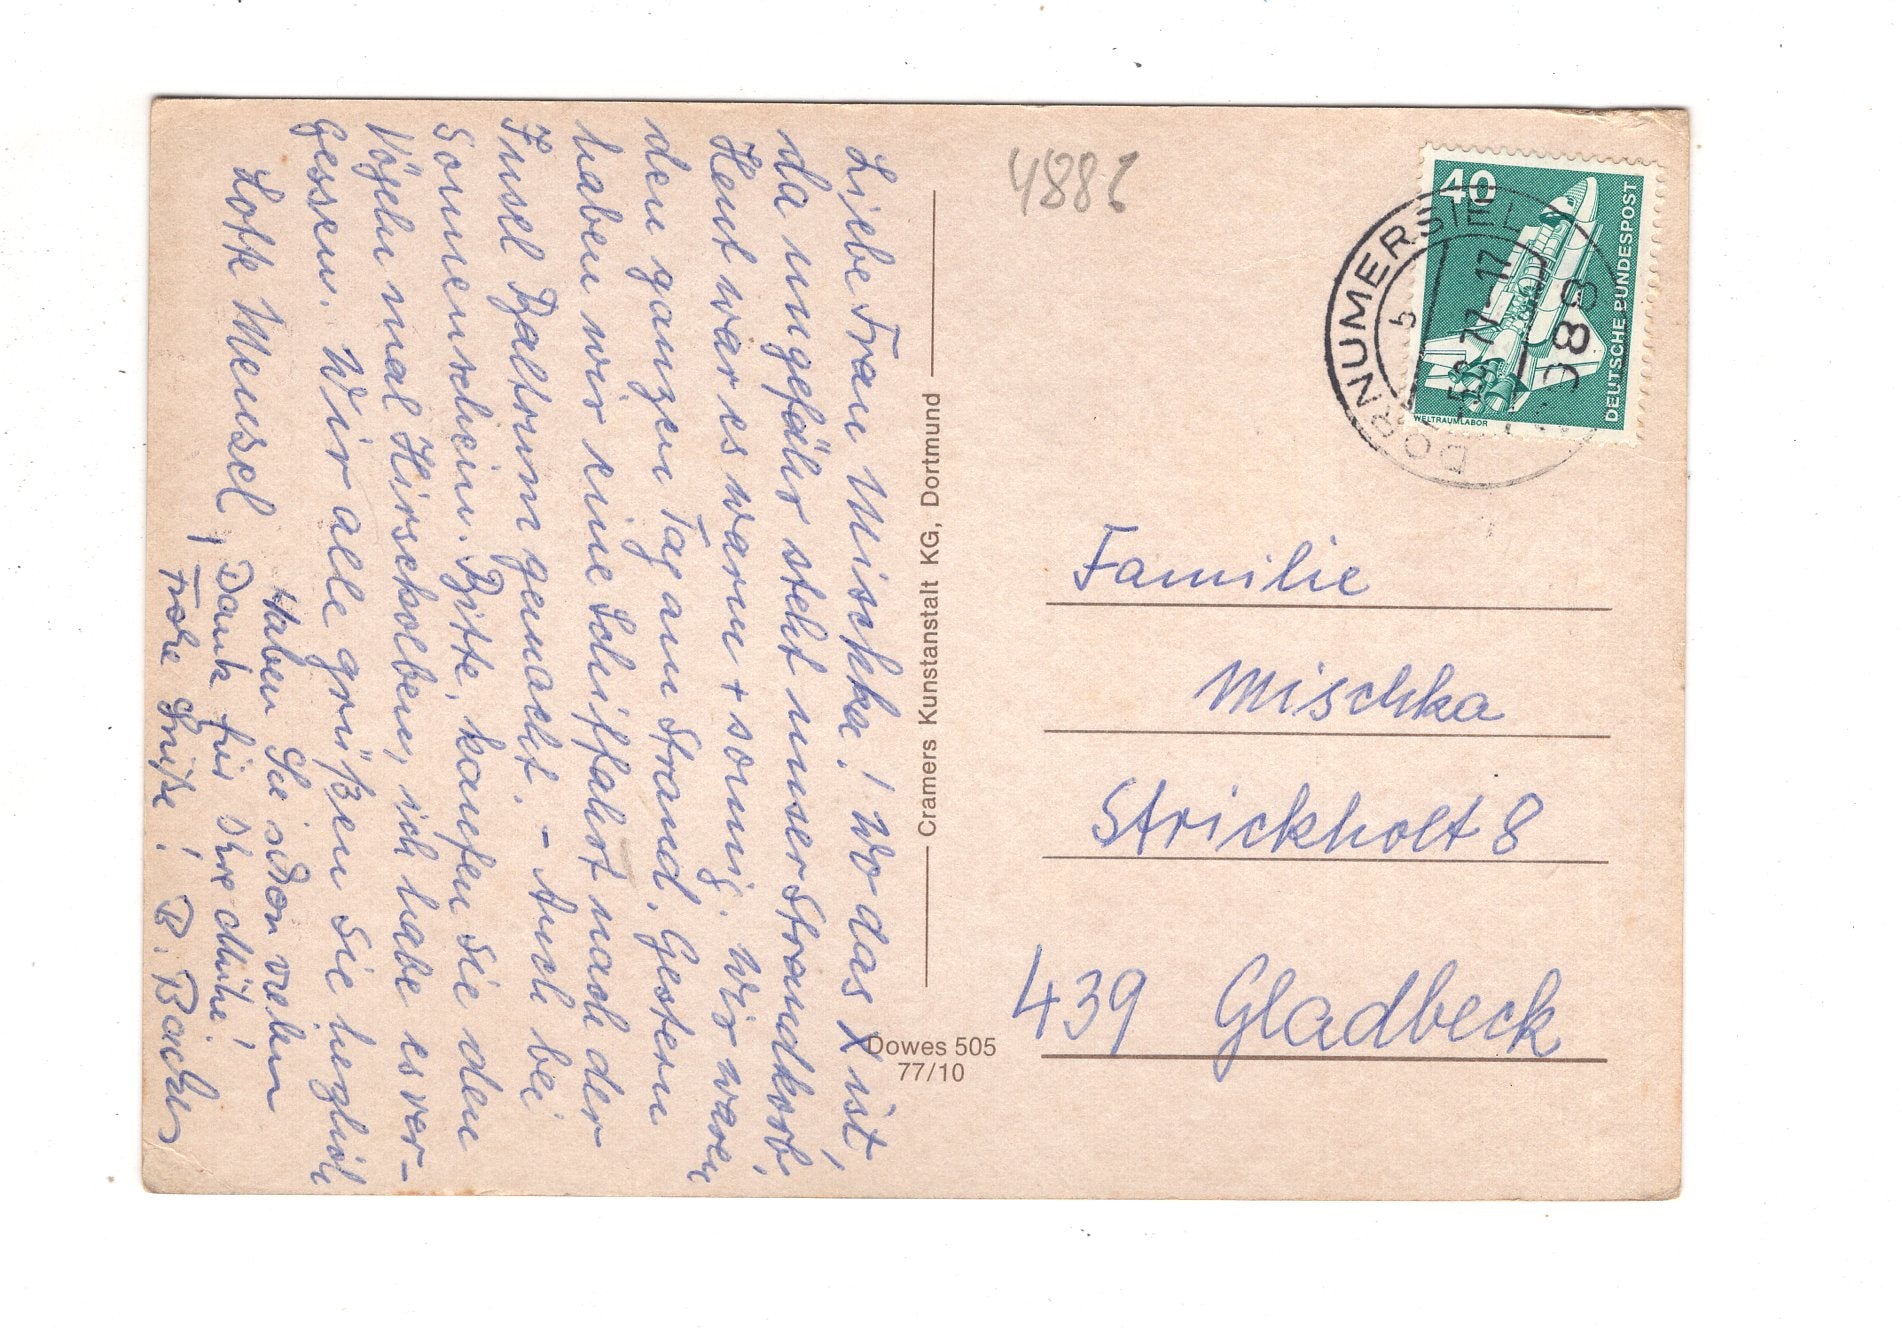 Liebe Frau Mischka! Wo das X ist,
da ungefähr steht unser Strandkorb.
Heut war es warm + sonnig. Wir waren
den ganzen Tag am Strand. Gestern
haben wir eine Schiffahrt nach der
Insel Baltrum gemacht. – Auch bei
Sonnenschein. Bitte, kaufen Sie den
Vögeln mal Hirsekolben, ich habe es ver-
gessen. Wir alle grüßen Sie herzlich
Lotte Mensel
Haben Sie schon vielen
Dank für Ihre Mühe!
Frohe Grüße! B.
Cramers Kunstanstalt KG, Dortmund
Dowes 505
77/10
4886
40
DEUTSCHE BUNDESPOST
WELTRAUMLABOR
DORNUMERSIEL
b
77-17
Familie
Mischka
Strickholt 8
439 Gladbeck